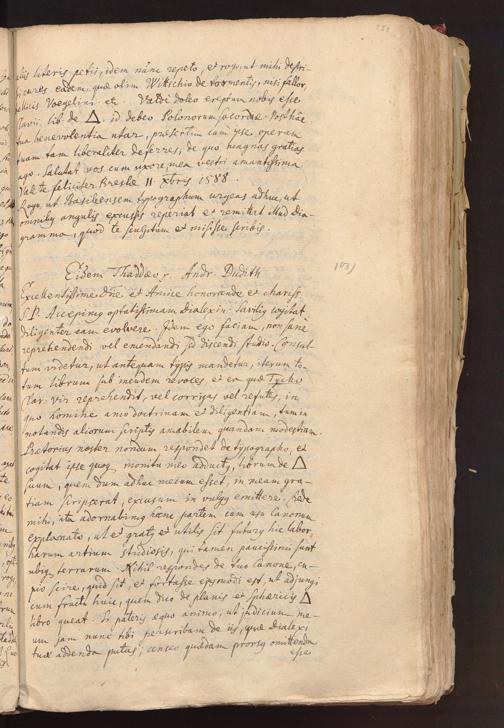 literis petii, idem nunc repeto, et rogo, ut mihi descri-
eadem, quae olim Wittichio de tormentis, nisi fallor,
Voegelini etc. Valdè doleo ereptum nobis esse
lib. de △. id debeo Polonorum socordiae. Posthac
tua benevolentia utar, praesertim cum ipse operam
tuam tam liberaliter deferres, de quo magnas gratias
ago. Salutat vos cum uxore, mea vestri amantissima
Vale feliciter. Breslae 11. Xbris 1588.
Rogo, ut Basileensem typographum urgeas adhuc, ut
omnibus angulis excussis reperiat et remittat illud Dia-
gramma, quod te sculptum et misisse scribis.
Eidem Thaddaeo, Andr. Dudith
Excellentissime Dne et Amice honorande et chariss.
S.P. Accepimus optatissimam dialexin. Savilius cogitat
diligenter eam evolvere. Idem ego faciam, non sane
reprehendendi vel emendandi sed discendi studio. Consul-
tum videtur, ut antequam typis mandetur, iterum to-
tum librum sub incudem revoces, et ea quae Tycho
Clar. vir reprehendit, vel corrigas vel refutes, in
quo homine amo doctrinam et diligentiam, tum in
notandis aliorum scriptis amabilem quandam modestiam.
Praetorius noster nondum respondet de typographo, et
cogitat ipse quoque monitu meo adductus, librum de △
suum, quem dum adhuc mecum esset, in meam gra-
tiam scripserat, excusum in vulgus emittere. Sed
mihi, ita adornabimus hanc partem cum usu Canonum
explanato, ut et gratus et utilis sit futurus hic labor,
harum artium studiosis, qui tamen paucissimi sunt
ubique terrarum. Nihil respondes de tuo Canone, cu-
pio scire, quid sit, et fortasse ejusmodi est, ut adjungi
cum fructu huic, quem dico de planis et sphaericis △
libro queat. Si pateris equo animo, ut judicium me-
um jam nunc tibi perscribam de iis, quae dialexi
tuae addenda putas, censeo quaedam prorsus omittenda
esse